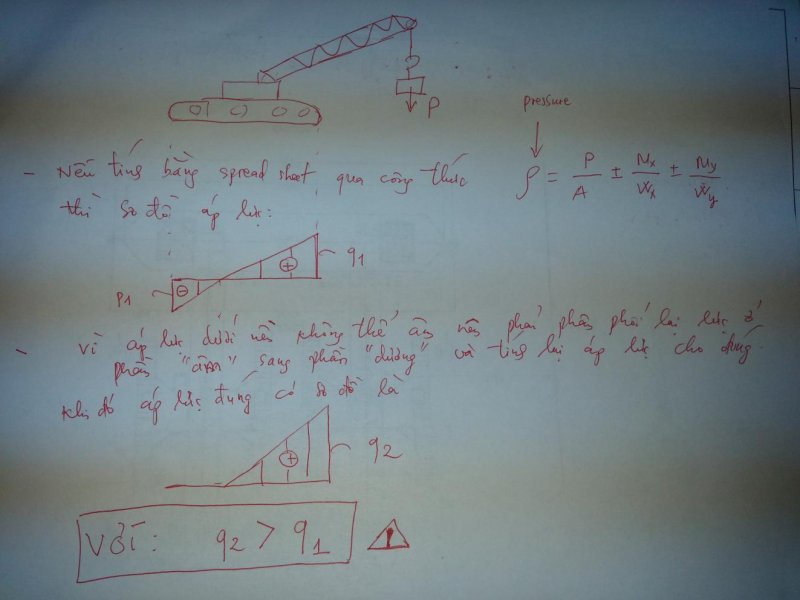 P
pressure
- Nếu tính bằng spread sheet qua công thức
ρ = P/A ± Mx/Wx ± My/Wy
thì sơ đồ áp lực:
q1
P1
- Vì áp lực dưới nền không thể âm nên phải phân phối lại lực ở
phần "âm" sang phần "dương" và tính lại áp lực cho đúng.
Khi đó áp lực đúng có sơ đồ là
q2
Với: q2 > q1
!